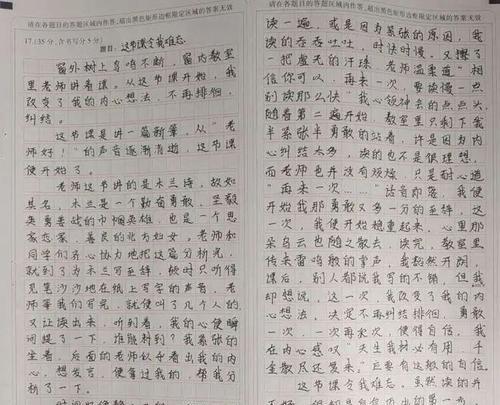 请在各题目的答题区域内作答,超出黑色矩形边框限定区域的答案无效
17.(35分,含书写5分)
题目:这节课令我难忘
窗外树上鸟鸣不断,窗内教室
里老师讲着课。从这节课开始,我
改变了我的内心想法,不再徘徊,
纠结。
这节课是讲一篇新篇,从“老
师好!”的声音逐渐消逝,这节课
便开始了。
老师这节讲的是木兰诗,故如
其名,木兰是一个勤奋勇敢,坚毅
英勇善战的巾帼英雄,也是一个思
家恋家,善良的北方妇女。老师和
同学们齐心协力地把这篇分析完,
就到了为木兰写
见笔沙沙地在纸上写字的声音,老
师等我们写完,就便叫了几个人的
又让读出来,听到着,我的心便瞬
间提了一下,谁能料到?我紧张的
坐着,后面的老师似乎看出我的内
心,想发言,便拿过我的,帮我分
析了一下。
请在各题目的答题区域内作答,超出黑色矩形边框限定区域的答案无效
读一遍,或是因为紧张的原因,我
读的吞吞吐吐,时快时慢,又擦了
一把虚无的汗珠,老师温柔道“相
信你可以,再来一次,要读慢一点
别读那么快”我心领神会的点点头,
随着第二遍开始,教室里只剩下我
半紧张半勇敢的站着,许是因为内
心纠结太多,读的也不是很理想,
而老师也并没有烦恼,只是耐心道
“再来一次……”话音即落,我便
开始我那勇敢又多一分的
一次,我便开始稳重起来,心里那
朵乌云也随之散去,读完,教室里
传来雷鸣般的掌声,我豁然开朗,
课后,别人都说我写的不错,但我
却想说,这一次,我改变了我的内
心想法,决定不再纠结徘徊,勇敢
一次,一次再来次,便得自信,我
在内心感叹“天生我材必有用,千
金散尽还复来,”巨要有这敢的自信。
这节课令我难忘,虽然读的并